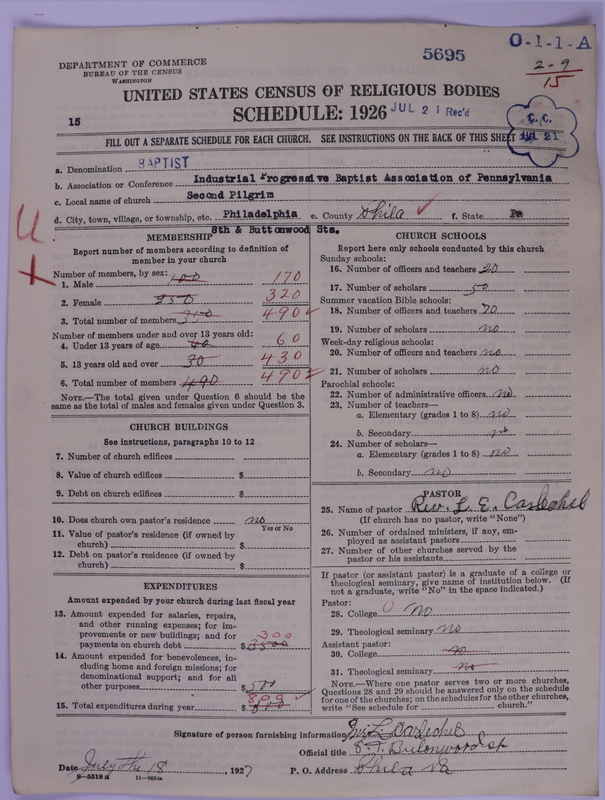 5695
O-1-1-A
2-9
15
DEPARTMENT OF COMMERCE
BUREAU OF THE CENSUS
WASHINGTON
UNITED STATES CENSUS OF RELIGIOUS BODIES
SCHEDULE: 1926
JUL 21 Rec'd
15
C. C.
JUL 21
FILL OUT A SEPARATE SCHEDULE FOR EACH CHURCH. SEE INSTRUCTIONS ON THE BACK OF THIS SHEET
a. Denomination BAPTIST
b. Association or Conference Industrial Progressive Baptist Association of Pennsylvania
c. Local name of church Second Pilgrim
d. City, town, village, or township, etc. Philadelphia e. County Phila f. State Pa
8th & Buttonwood Sts.
MEMBERSHIP
Report number of members according to definition of
member in your church
Number of members, by sex:
1. Male 100 170
2. Female 350 320
3. Total number of members 490
Number of members under and over 13 years old:
4. Under 13 years of age 60
5. 13 years old and over 30 430
6. Total number of members 490 490
NOTE.—The total given under Question 6 should be the
same as the total of males and females given under Question 3.
CHURCH BUILDINGS
See instructions, paragraphs 10 to 12
7. Number of church edifices
8. Value of church edifices $
9. Debt on church edifices $
10. Does church own pastor's residence no
Yes or No
11. Value of pastor's residence (if owned by
church) $
12. Debt on pastor's residence (if owned by
church) $
EXPENDITURES
Amount expended by your church during last fiscal year
13. Amount expended for salaries, repairs,
and other running expenses; for im-
provements or new buildings; and for
payments on church debt $ 3500 300
14. Amount expended for benevolences, in-
cluding home and foreign missions; for
denominational support; and for all
other purposes $ 500
15. Total expenditures during year $ 800
CHURCH SCHOOLS
Report here only schools conducted by this church
Sunday schools:
16. Number of officers and teachers 20
17. Number of scholars 50
Summer vacation Bible schools:
18. Number of officers and teachers 20
19. Number of scholars no
Week-day religious schools:
20. Number of officers and teachers no
21. Number of scholars no
Parochial schools:
22. Number of administrative officers no
23. Number of teachers—
a. Elementary (grades 1 to 8) no
b. Secondary no
24. Number of scholars—
a. Elementary (grades 1 to 8) no
b. Secondary no
PASTOR
25. Name of pastor Rev. L. E.
(If church has no pastor, write "None")
26. Number of ordained ministers, if any, em-
ployed as assistant pastors
27. Number of other churches served by the
pastor or his assistants
If pastor (or assistant pastor) is a graduate of a college or
theological seminary, give name of institution below. (If
not a graduate, write "No" in the space indicated.)
Pastor:
28. College 0 no
29. Theological seminary no
Assistant pastor:
30. College no
31. Theological seminary no
NOTE.—Where one pastor serves two or more churches,
Questions 28 and 29 should be answered only on the schedule
for one of the churches; on the schedules for the other churches,
write "See schedule for church."
Signature of person furnishing information
Official title
Date July the 18, 1927 P. O. Address Phila
8-5518a 11-9554a